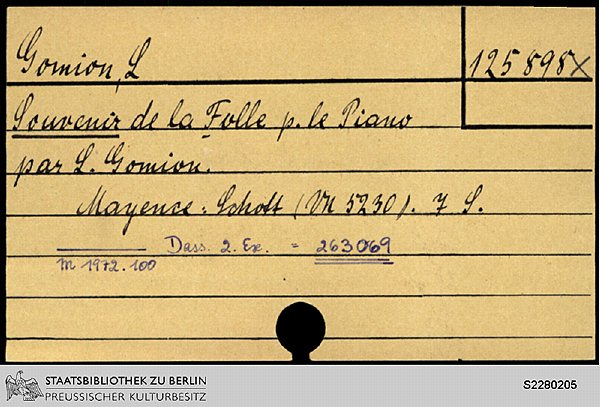 Gomion, L
125898x
Souvenir de la Folle p. le Piano
par L. Gomion.
Mayence: Schott (VN 5230). 7 S.
Dass. 2. Ex. = 263069
M 1972.100
STAATSBIBLIOTHEK ZU BERLIN
PREUSSISCHER KULTURBESITZ
S2280205